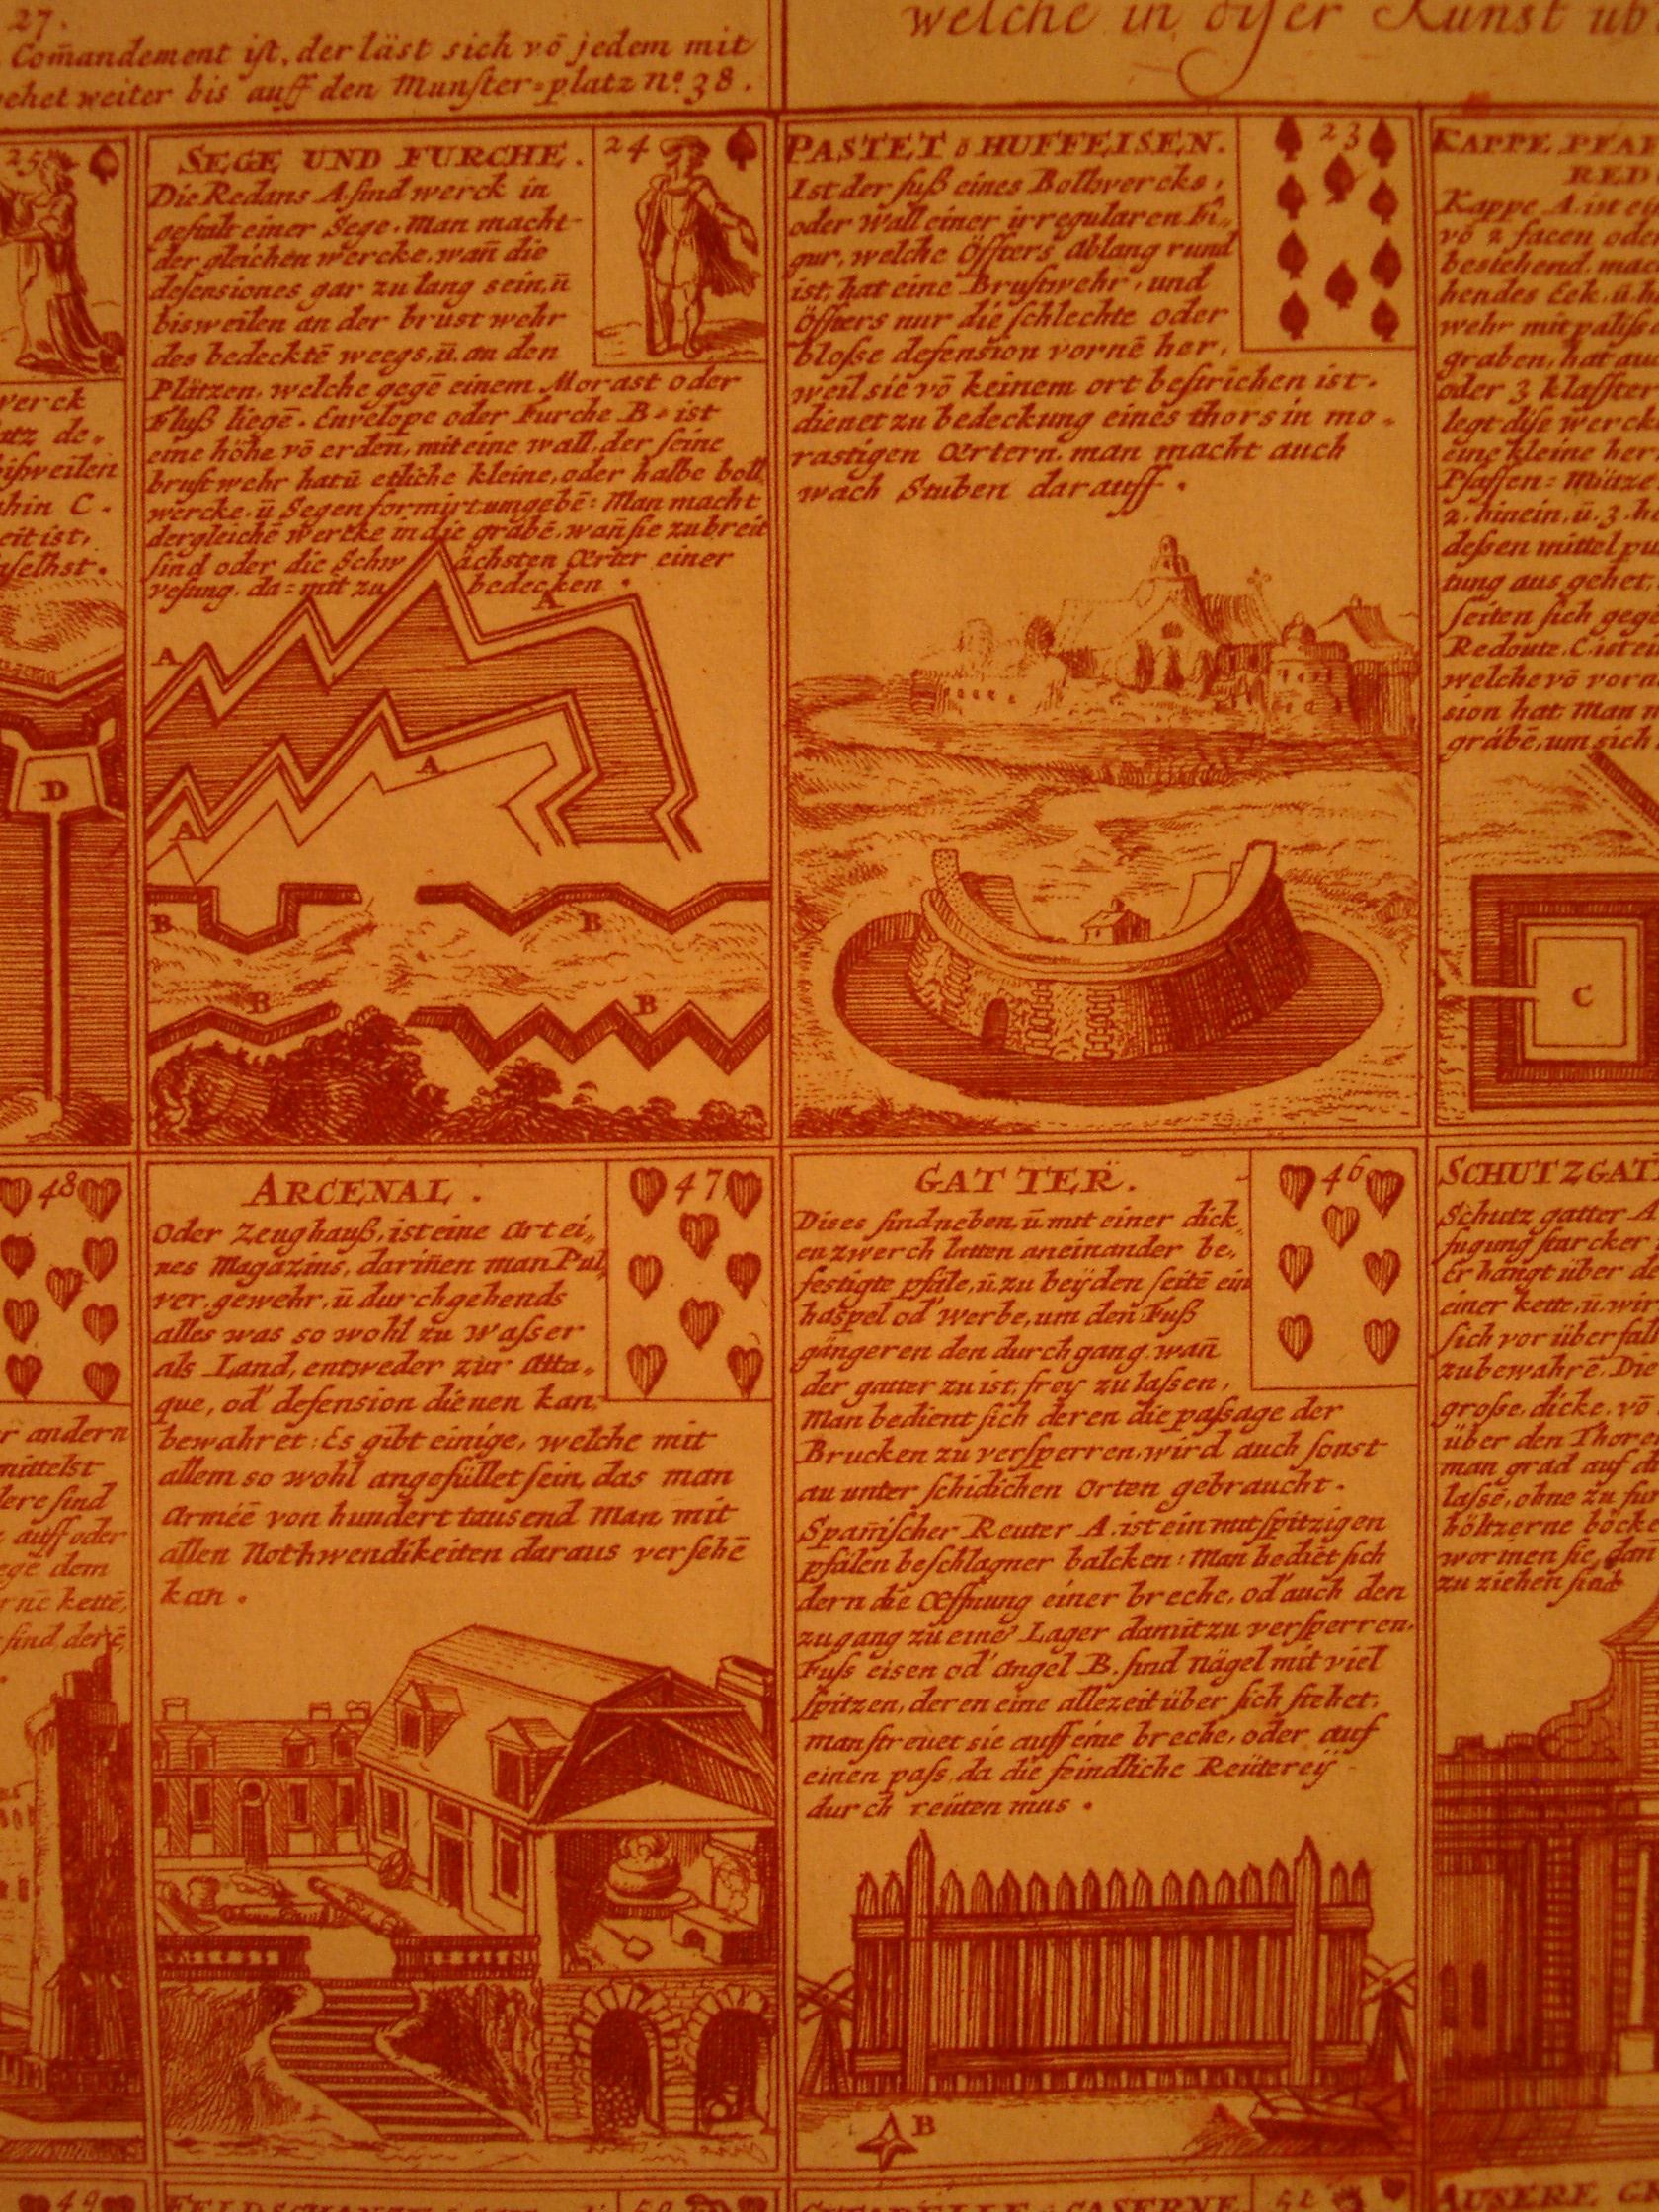 27.
Com̄andement ist, der läst sich vō jedem mit
gehet weiter bis auff den Munster=platz Nº 38.
welche in diser Kunst üb
25
SEGE UND FURCHE.
24
Die Redans A. sind werck in
gestalt einer Sege. Man macht
der gleichen wercke, wan̄ die
defensiones gar zu lang sein, ū
bisweilen an der brust wehr
des bedecktē weegs, ū. an den
Plätzen, welche gegē einem Morast oder
Fluß liegē. Envelope oder Furche B. ist
eine höhe vō erden, mit eine wall, der seine
brustwehr hat ū etliche kleine, oder halbe boll
wercke, ū Segen formirt umgebē: Man macht
dergleichē wercke in die grabē, wan̄ sie zu breit
sind oder die Schwächsten Œrter einer
vestung. da=mit zu bedecken.
A
A
A
A
B
B
B
B
PASTET ō HUFFEISEN.
23
Ist der fuß eines Bollwercks,
oder Wall einer irregularen Fi„
gur, welche Öffters ablang rund
ist, hat eine Brustwehr, und
Öffters nur die schlechte oder
blosse defension vornē her,
weil sie vō keinem ort bestrichen ist.
dienet zu bedeckung eines thors in mo„
rastigen Œrtern. man macht auch
wach Stuben darauff.
KAPPE PFAF
RED
Kappe A. ist ei
vō 2 facen oder
bestehend. mac
hendes Eck. ū. h
wehr mit palisa
graben, hat au
oder 3 klaffter
legt dise werck
eine kleine her
Pfaffen=Mütze
2. hinein, ū. 3. he
dessen mittel pu
tung aus gehet,
seiten sich gege
Redoute. C. ist ei
welche vō vorn
sion hat. Man m
grabē, um sich
C
verck
atz de„
bißweilen
hin C.
eit ist,
selbst.
D
48
r andern
mittelst
dere sind
auff oder
egē dem
rnē kettē,
sind, derē,
ARCENAL.
47
Oder Zeughauß, ist eine art ei„
nes Magazins, darin̄en man Pul„
ver, gewehr, ū durchgehends
alles was so wohl zu wasser
als Land, entweder zur atta„
que, od' defension dienen kan,
bewahret: Es gibt einige, welche mit
allem so wohl angefüllet sein, das man
Armēē von hundert tausend Man, mit
allen Nothwendikeiten daraus versehē
kan.
GATTER.
46
Dises sind neben ū mit einer dick„
en zwerch latten aneinander be„
festigte pfäle, ū. zu beÿden seitē ein
haspel od' werbe, um den Fuß
gängeren den durchgang, wan̄
der gatter zu ist, frey zu lassen,
Man bedient sich deren die passage der
Brucken zu versperren, wird auch sonst
an unter schidichen Orten gebraucht.
Span̄ischer Reuter A. ist ein mit spitzigen
pfälen beschlagner balcken: Man bediēt sich
dern die Œffnung einer breche, od' auch den
zugang zu eine' Lager damit zu versperren.
Fuss eisen od' angel B. sind Nägel mit viel
spitzen, deren eine allezeit über sich stehet,
man streuet sie auff eine breche, oder auf
einen pass, da die feindliche Reüterey
durch reüten mus.
B
A
SCHUTZGATT
Schutz gatter A
fugung starcker
Er hangt über de
einer kette, ū. wir
sich vor über fall
zu bewahrē. Die
große, dicke, vō
über den Thore
man grad auf di
lassē, ohne zu fur
höltzerne böcke
worin̄en sie, dan̄
zu ziehen sind
49
FELDSCHANZE
50
CITADELLE CASERNE
51
AUSERE GR